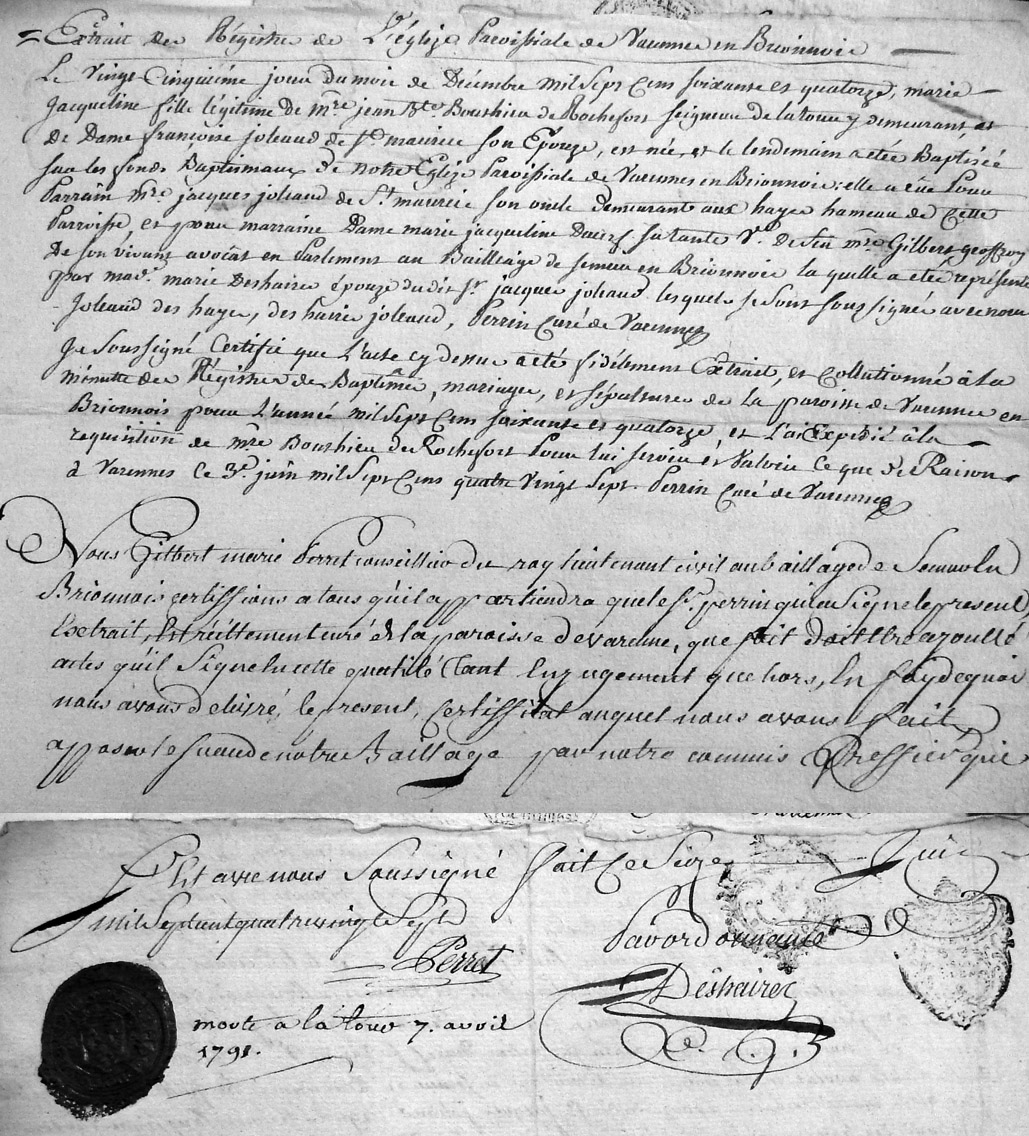 Extrait des Régistre de L'église Paroissiale de Varenne en Brionnois
Le vingt Cinquiéme jour du mois de Décembre mil Sept Cens soixante et quatorze, marie
jacqueline fille légitime de mre jean Bte Bouthieu de Rochefort seigneur de latour y demeurant et
De Dame françoise joleaud de St maurice son Epouze, est née, et le lendemain a etée Baptisée
sur les fonds Baptismaux de notre Eglise Paroissiale de Varennes en Brionnois; elle a eûe Pour
Parrain mre jacques joleaud de St maurice son oncle demeurant aux hayes hameau de cette
Parroisse, et pour marraine Dame marie jacqueline sa tante Ve de feu mre Gilbert geoffroy
De son vivant avocât en Parlement au Bailleage de semur en Brionnois la quelle a eté représentée
par marie Deshaire épouze du dit Sr jacques joleaud. lesquels se sont sous signé avec nous
Joleaud des hayes, des haires joleaud, Perrin Curé de Varennes
Je Soussigné Certifie que L'acte cy dessus a eté fidélement Extrait, et collationné à la
minutte des Régistres de Baptême, mariages, et sépultures de la paroisse de Varenne en
Brionnois pour L'année mil Sept Cens soixante et quatorze, et L'ai Expedié à la
requisition de mre Bouthieu de Rochefort Pour lui servir et Valoir Ce que de Raison
à Varennes ce 3e juin mil Sept Cens quatre Vingt Sept. Perrin Curé de Varennes
Nous Gilbert marie Perret conseiller du roy lieutenant civil au bailliage de Semur en
Brionnais certiffions a tous qu'il appartiendra que le Sr perrin qui a signé le present
Extrait, Est réellement curé de la paroisse de varenne, que foit doit Etre ajoutté
actes qu'il signe en cette qualité tant En jugement que hors, En foy de quoi
nous avons delivré, le present, certifficat auquel nous avons fait
apposer le sceau de notre Baillage par notre commis Greffier qui
S'est avec nous Soussigné fait Ce Seize Juin
mil Sept cent quatre vingt Sept
Perret
Par ordonnance
Deshaires
morte a la tour 7. avril
1791.